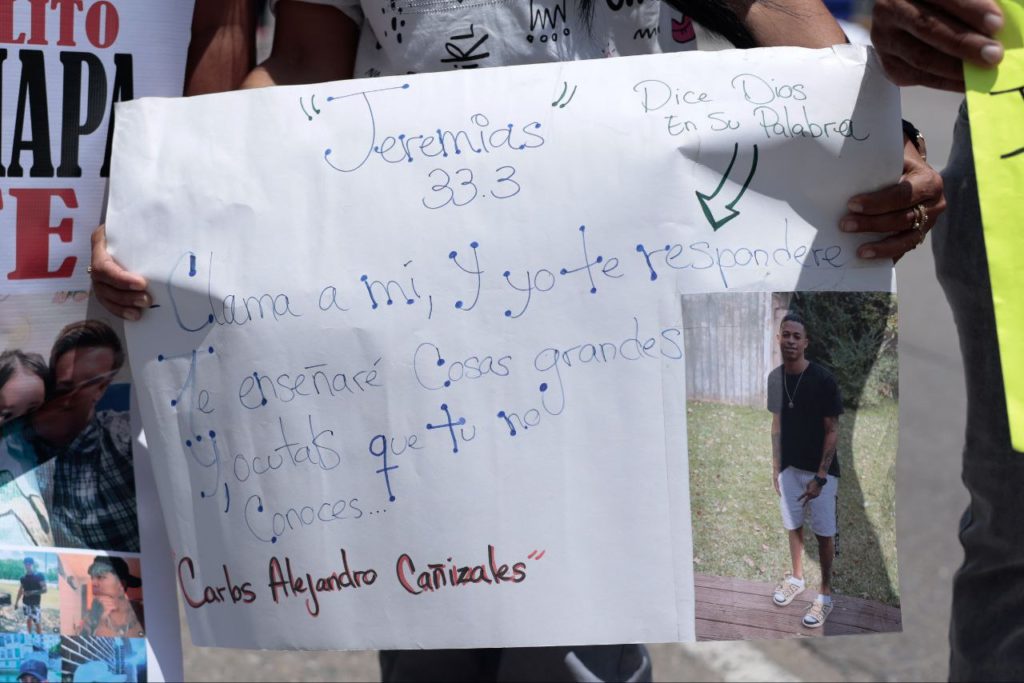 LITO
NAPA
TE
"Jeremias"
33.3
Dice Dios
En Su Palabra
-Clama a mi, Y yo te respondere
Te enseñaré Cosas grandes
Y, ocutals que tu no
Conoces...
"Carlos Alejandro Cañizales"
GIRL